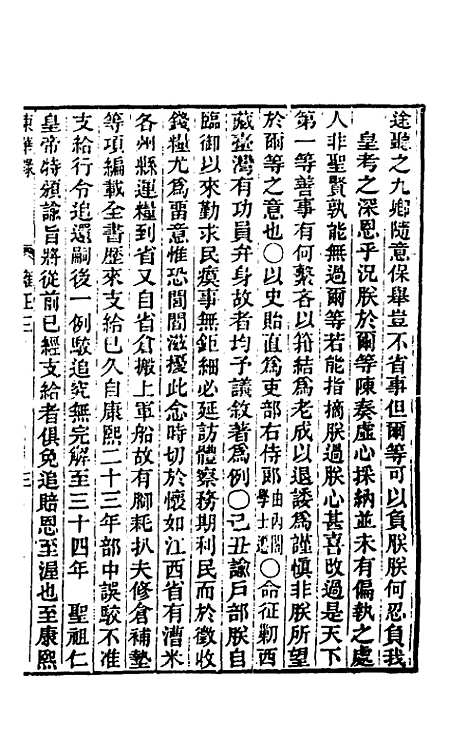 途聽之九卿隨意保舉豈不省事但爾等可以負朕朕何忍負我
皇考之深恩乎況朕於爾等陳奏虛心採納並未有偏執之處
人非聖賢孰能無過爾等若能指摘朕過朕心甚喜改過是天下
第一等善事有何繫吝以箝結為老成以退諉為謹慎非朕所望
於爾等之意也○以史貽直為吏部右侍郎由內閣學士遷○命征剿西
藏臺灣有功員弁身故者均予議敘著為例○己丑諭戶部朕自
臨御以來勤求民瘼事無鉅細必延訪體察務期利民而於徵收
錢糧尤為畱意惟恐閭閻滋擾此念時切於懷如江西省有漕米
各州縣運糧到省又自省倉搬上軍船故有腳耗扒夫修倉補墊
等項編載全書歷來支給已久自康熙二十三年部中誤駮不准
支給行令追還嗣後一例駮追究無完解至三十四年 聖祖仁
皇帝特頒諭旨將從前已經支給者俱免追賠恩至渥也至康熙
東華錄 雍正三 三